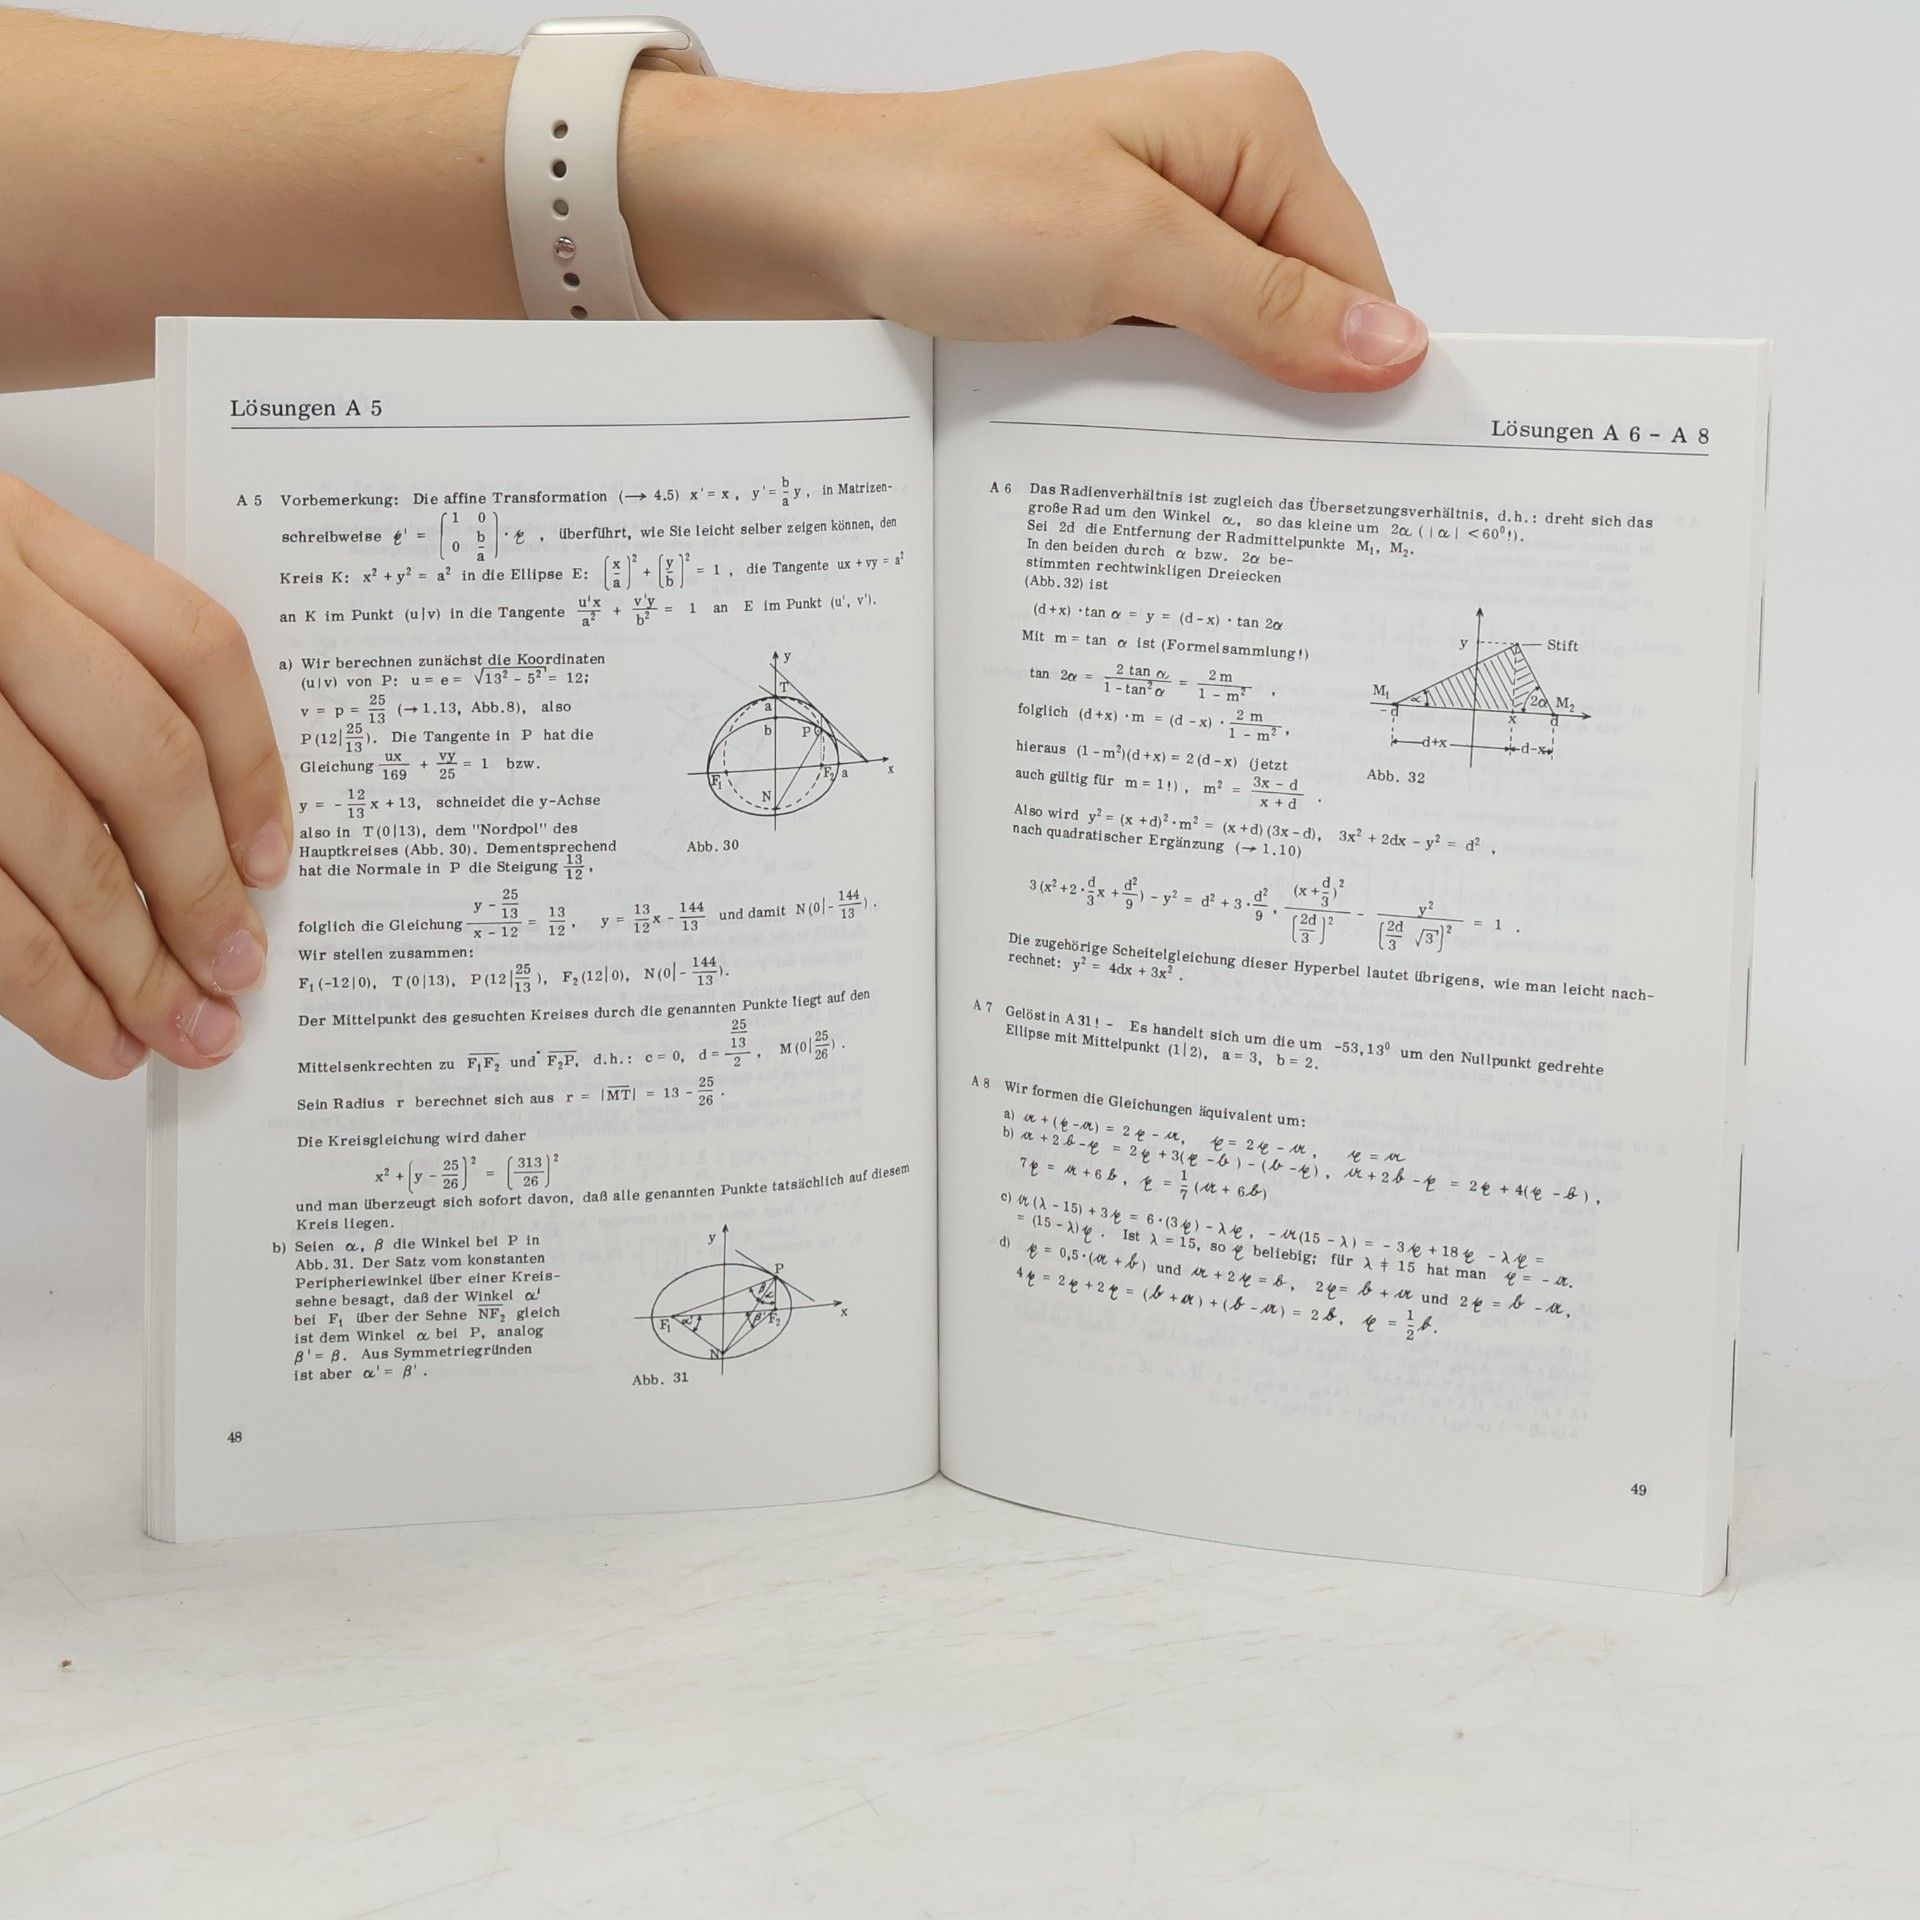 Lösungen A 5
A 5 Vorbemerkung: Die affine Transformation (→ 4.5) x' = x, y' = b/a y, in Matrizen-
schreibweise 𝔵' = (1 0; 0 b/a) · 𝔵, überführt, wie Sie leicht selber zeigen können, den
Kreis K: x² + y² = a² in die Ellipse E: (x/a)² + (y/b)² = 1, die Tangente ux + vy = a²
an K im Punkt (u|v) in die Tangente u'x/a² + v'y/b² = 1 an E im Punkt (u', v').
a) Wir berechnen zunächst die Koordinaten
(u|v) von P: u = e = √(13² - 5²) = 12;
v = p = 25/13 (→ 1.13, Abb. 8), also
P(12|25/13). Die Tangente in P hat die
Gleichung ux/169 + vy/25 = 1 bzw.
y = - 12/13 x + 13, schneidet die y-Achse
also in T(0|13), dem "Nordpol" des
Hauptkreises (Abb. 30). Dementsprechend
hat die Normale in P die Steigung 13/12,
y
T
a
b
P
F₁
F₂
a
x
N
Abb. 30
folglich die Gleichung (y - 25/13)/(x - 12) = 13/12, y = 13/12 x - 144/13 und damit N(0|- 144/13).
Wir stellen zusammen:
F₁(-12|0), T(0|13), P(12|25/13), F₂(12|0), N(0|- 144/13).
Der Mittelpunkt des gesuchten Kreises durch die genannten Punkte liegt auf den
Mittelsenkrechten zu F₁F₂ und F₂P, d.h.: c = 0, d = (25/13)/2, M(0|25/26).
Sein Radius r berechnet sich aus r = |MT| = 13 - 25/26.
Die Kreisgleichung wird daher
x² + (y - 25/26)² = (313/26)²
und man überzeugt sich sofort davon, daß alle genannten Punkte tatsächlich auf diesem
Kreis liegen.
b) Seien α, β die Winkel bei P in
Abb. 31. Der Satz vom konstanten
Peripheriewinkel über einer Kreis-
sehne besagt, daß der Winkel α'
bei F₁ über der Sehne NF₂ gleich
ist dem Winkel α bei P, analog
β' = β. Aus Symmetriegründen
ist aber α' = β'.
y
P
β
α
x
F₁
α'
β'
F₂
N
Abb. 31
48
Lösungen A 6 - A 8
A 6 Das Radienverhältnis ist zugleich das Übersetzungsverhältnis, d.h.: dreht sich das
große Rad um den Winkel α, so das kleine um 2α (|α| < 60⁰!).
Sei 2d die Entfernung der Radmittelpunkte M₁, M₂.
In den beiden durch α bzw. 2α be-
stimmten rechtwinkligen Dreiecken
(Abb. 32) ist
(d+x) · tan α = y = (d-x) · tan 2α
Mit m = tan α ist (Formelsammlung!)
tan 2α = 2 tan α/(1 - tan² α) = 2m/(1 - m²),
folglich (d+x) · m = (d-x) · 2m/(1 - m²),
hieraus (1 - m²)(d+x) = 2(d-x) (jetzt
auch gültig für m = 1!), m² = (3x - d)/(x + d).
y
Stift
M₁
α
2α
M₂
-d
x
d
d+x
d-x
Abb. 32
Also wird y² = (x+d)² · m² = (x+d)(3x-d), 3x² + 2dx - y² = d²,
nach quadratischer Ergänzung (→ 1.10)
3(x² + 2 · d/3 x + d²/9) - y² = d² + 3 · d²/9, (x + d/3)²/(2d/3)² - y²/(2d/3 √3)² = 1.
Die zugehörige Scheitelgleichung dieser Hyperbel lautet übrigens, wie man leicht nach-
rechnet: y² = 4dx + 3x².
A 7 Gelöst in A 31! - Es handelt sich um die um -53,13⁰ um den Nullpunkt gedrehte
Ellipse mit Mittelpunkt (1|2), a = 3, b = 2.
A 8 Wir formen die Gleichungen äquivalent um:
a) 𝔞 + (𝔵 - 𝔞) = 2𝔵 - 𝔞, 𝔵 = 2𝔵 - 𝔞, 𝔵 = 𝔞
b) 𝔞 + 2𝔟 - 𝔵 = 2𝔵 + 3(𝔵 - 𝔟) - (𝔟 - 𝔵), 𝔞 + 2𝔟 - 𝔵 = 2𝔵 + 4(𝔵 - 𝔟),
7𝔵 = 𝔞 + 6𝔟, 𝔵 = 1/7 (𝔞 + 6𝔟)
c) 𝔞(λ - 15) + 3𝔵 = 6 · (3𝔵) - λ𝔵, - 𝔞(15 - λ) = - 3𝔵 + 18𝔵 - λ𝔵 =
= (15 - λ)𝔵. Ist λ = 15, so 𝔵 beliebig; für λ ≠ 15 hat man 𝔵 = - 𝔞.
d) 𝔵 = 0,5 · (𝔞 + 𝔟) und 𝔞 + 2𝔵 = 𝔟, 2𝔵 = 𝔟 + 𝔞 und 2𝔵 = 𝔟 - 𝔞,
4𝔵 = 2𝔵 + 2𝔵 = (𝔟 + 𝔞) + (𝔟 - 𝔞) = 2𝔟, 𝔵 = 1/2 𝔟.
49